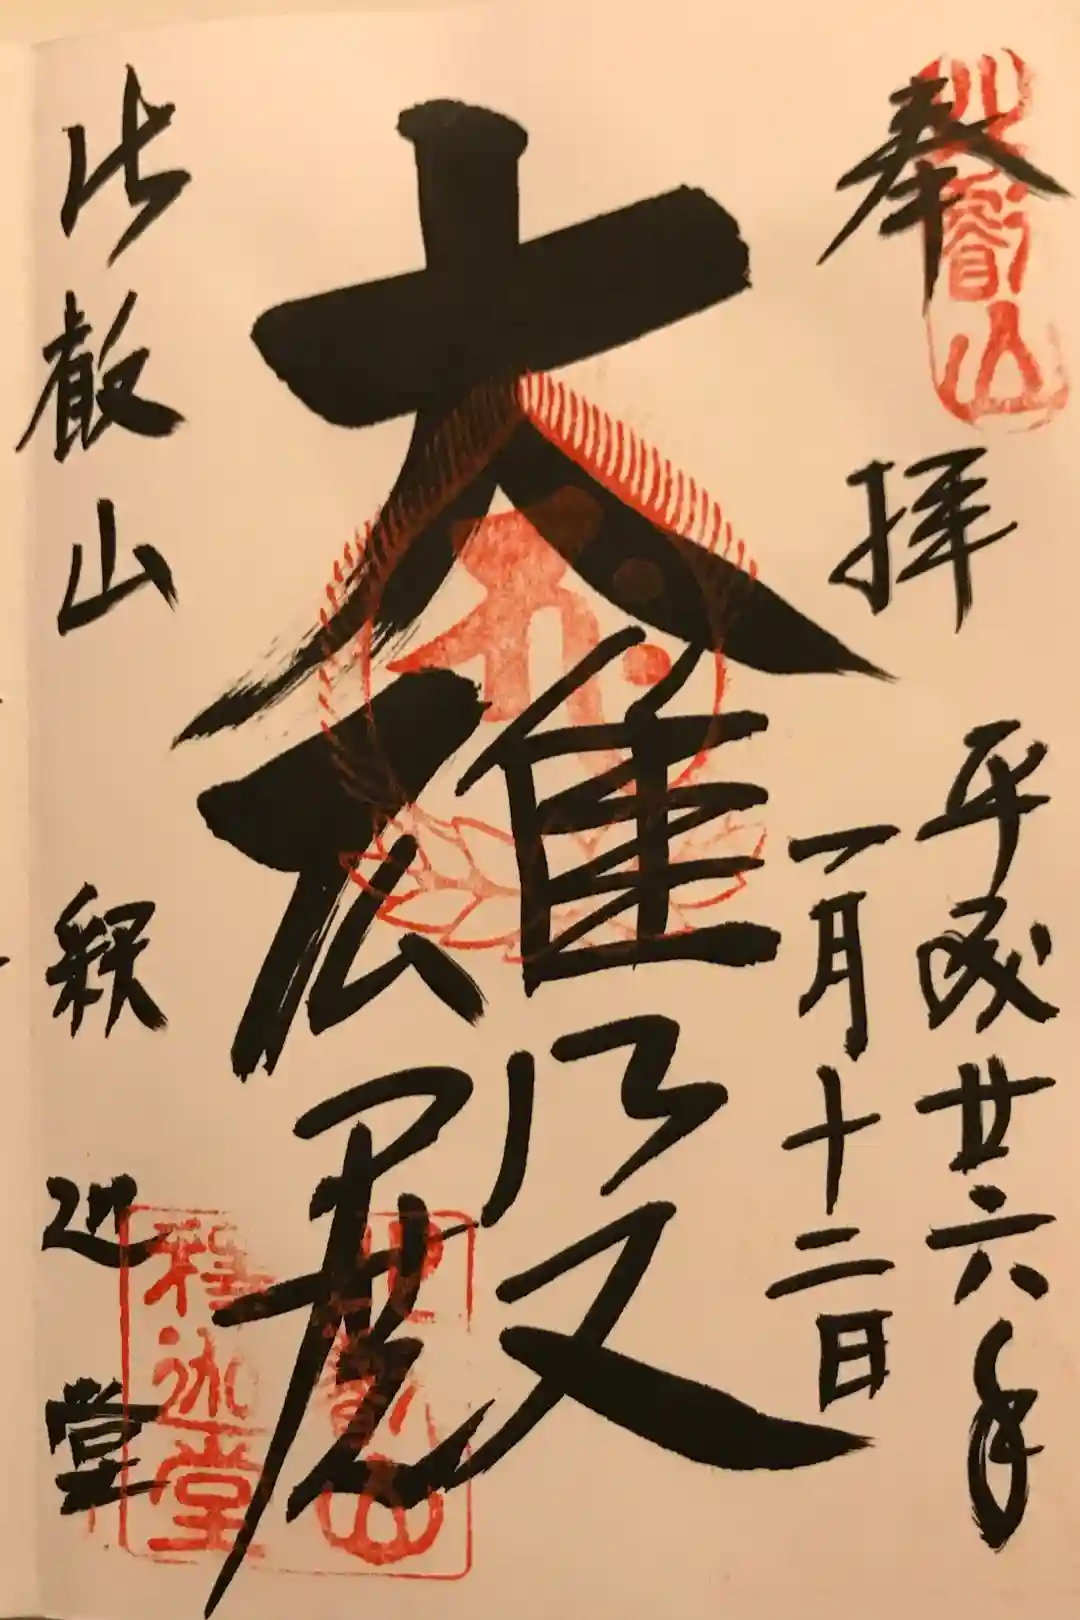 奉拝
比叡山
平成廿六年
一月十二日
大雄殿
比叡山 釈迦堂
比叡山
釈迦堂